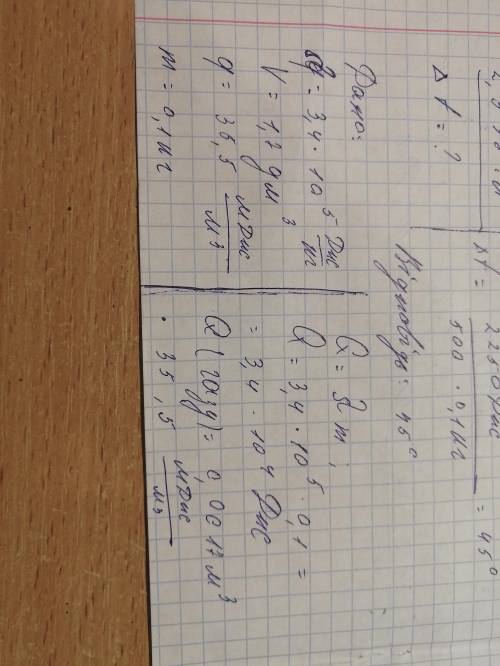 Δt = ?
Δt = 2250Дж / 500 · 0,1кг = 45°
Відповідь: 45°
Дано:
= 3,4 · 10⁵ Дж/кг
V = 1,7 дм³
q = 35,5 МДж/м³
m = 0,1кг
Q = λm;
Q = 3,4 · 10⁵ · 0,1 =
= 3,4 · 10⁴ Дж
Q(газу) = 0,0017м³
· 35,5 МДж/м³